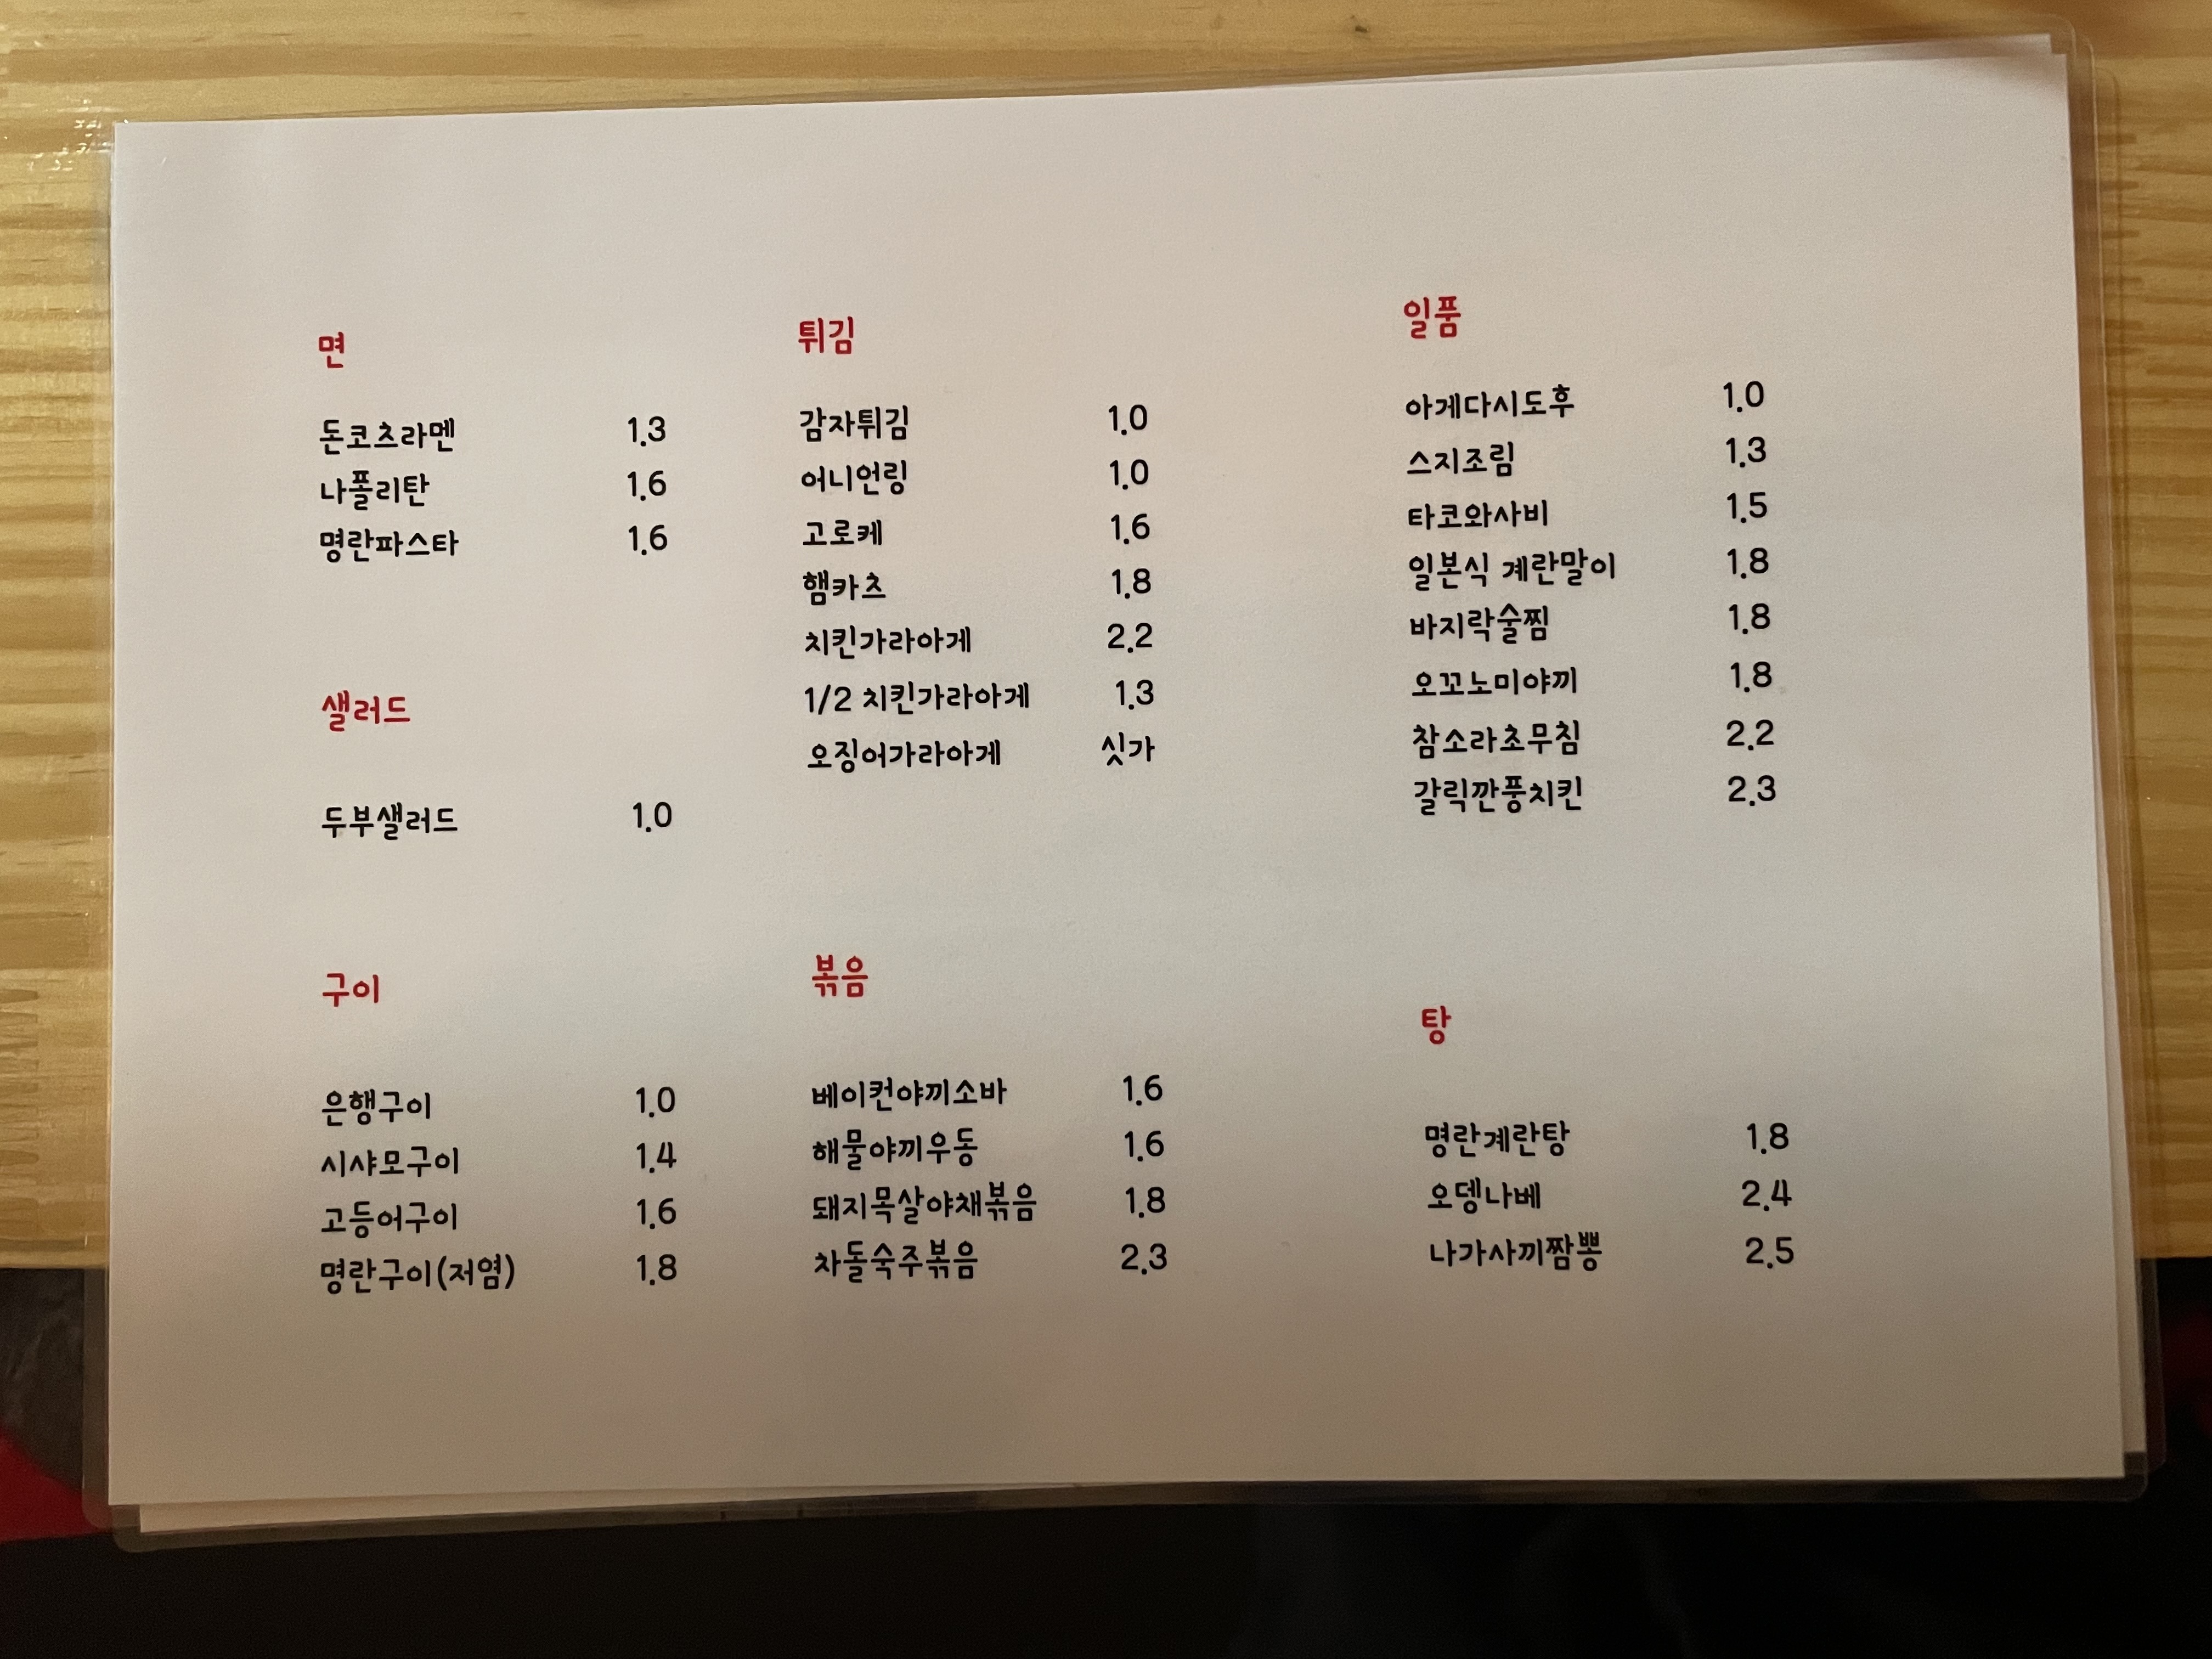 면
돈코츠라멘 1.3
나폴리탄 1.6
명란파스타 1.6
샐러드
두부샐러드 1.0
구이
은행구이 1.0
시샤모구이 1.4
고등어구이 1.6
명란구이(저염) 1.8
튀김
감자튀김 1.0
어니언링 1.0
고로케 1.6
햄카츠 1.8
치킨가라아게 2.2
1/2 치킨가라아게 1.3
오징어가라아게 싯가
볶음
베이컨야끼소바 1.6
해물야끼우동 1.6
돼지목살야채볶음 1.8
차돌숙주볶음 2.3
일품
아게다시도후 1.0
스지조림 1.3
타코와사비 1.5
일본식 계란말이 1.8
바지락술찜 1.8
오꼬노미야끼 1.8
참소라초무침 2.2
갈릭깐풍치킨 2.3
탕
명란계란탕 1.8
오뎅나베 2.4
나가사끼짬뽕 2.5